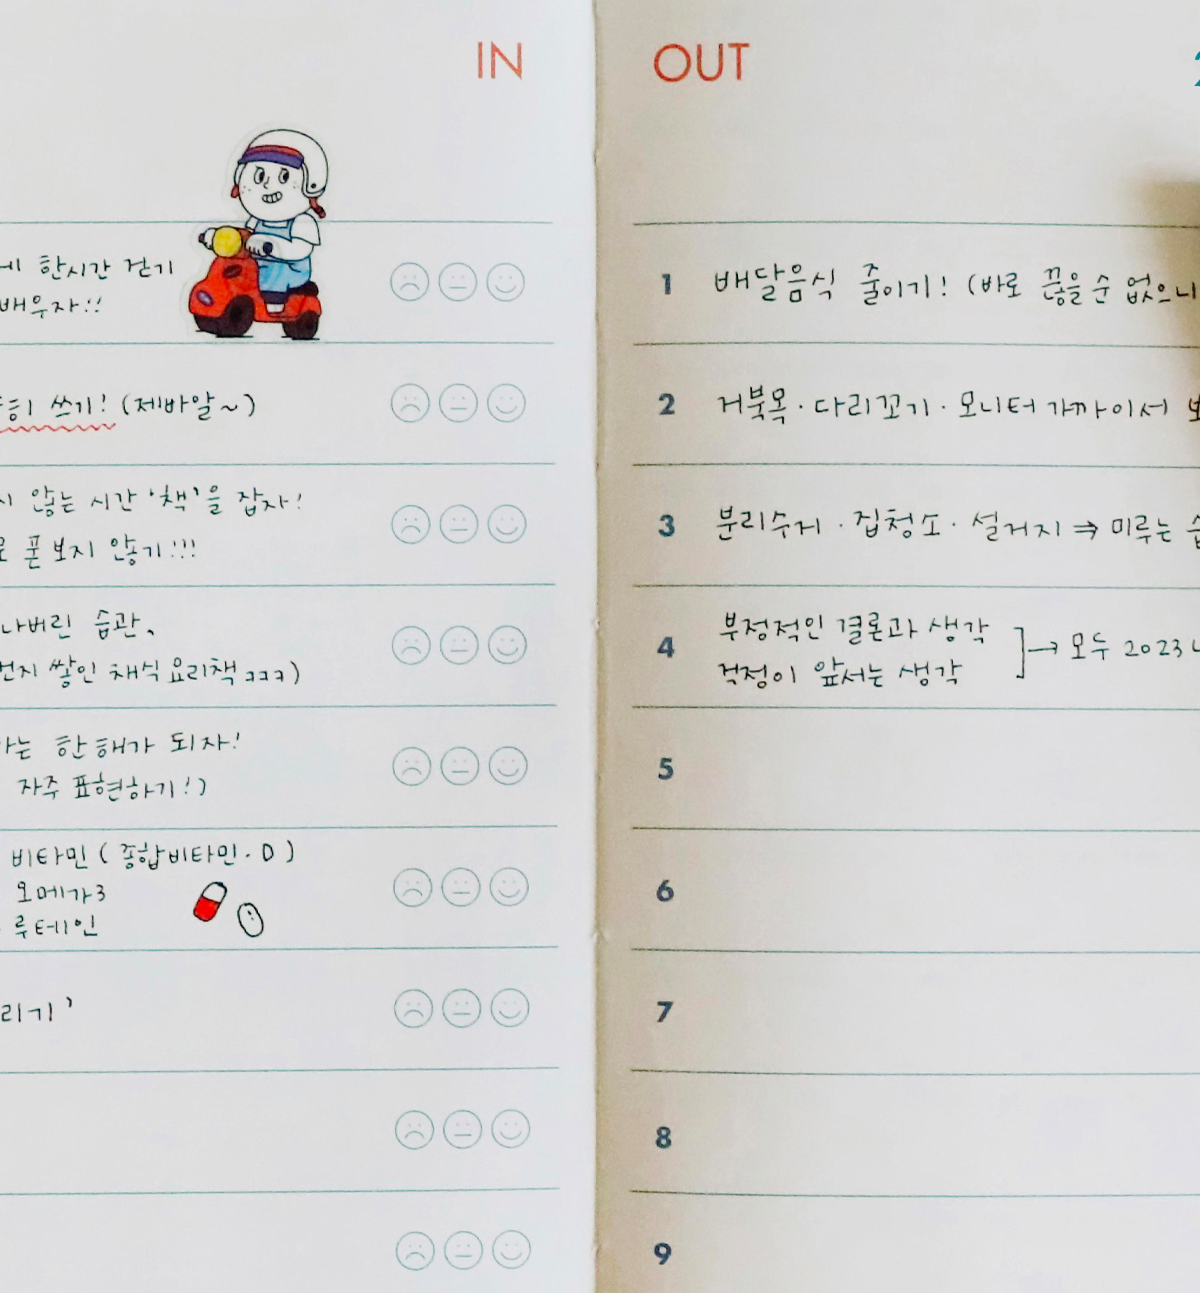 IN
한시간 걷기
배우자!!
쓰기! (제바알~)
않는 시간 '책'을 잡자!
폰 보지 않기!!!
습관,
쌓인 채식 요리책ㅋㅋㅋ)
는 한 해가 되자!
자주 표현하기!)
비타민 (종합비타민·D)
오메가3
루테인
리기'
OUT
1 배달음식 줄이기! (바로 끊을 순 없으니
2 거북목·다리꼬기·모니터 가까이서
3 분리수거·집청소·설거지 ⇒ 미루는
4 부정적인 결론과 생각
걱정이 앞서는 생각 → 모두 2023
5
6
7
8
9